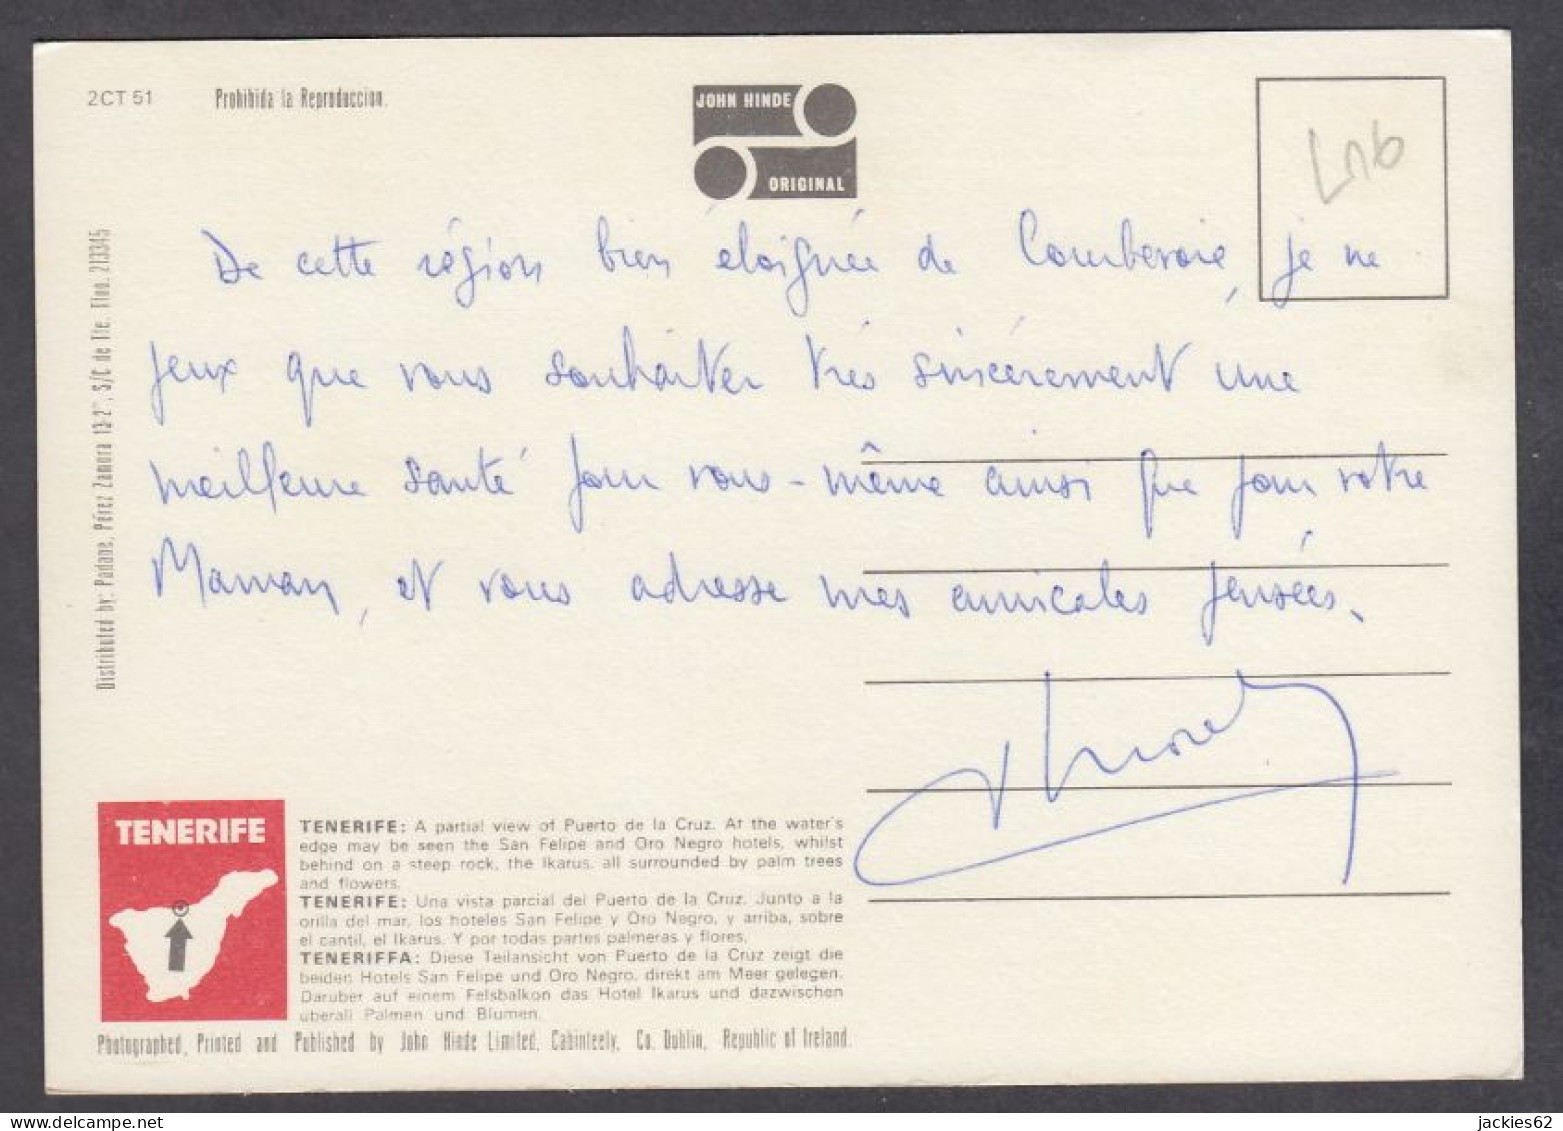 2CT 51
Prohibida la Reproduccion.
JOHN HINDE
ORIGINAL
De cette région bien éloignée de Courbevoie, je ne
peux que vous souhaiter très sincèrement une
meilleure santé pour vous-même ainsi que pour votre
Maman, et vous adresse mes amicales pensées.
Distributed by: Padane, Pérez Zamora 13-2º, S/C de Tfe. Tfno. 213345
TENERIFE
TENERIFE: A partial view of Puerto de la Cruz. At the water's
edge may be seen the San Felipe and Oro Negro hotels, whilst
behind on a steep rock, the Ikarus, all surrounded by palm trees
and flowers.
TENERIFE: Una vista parcial del Puerto de la Cruz. Junto a la
orilla del mar, los hoteles San Felipe y Oro Negro, y arriba, sobre
el cantil, el Ikarus. Y por todas partes palmeras y flores.
TENERIFFA: Diese Teilansicht von Puerto de la Cruz zeigt die
beiden Hotels San Felipe und Oro Negro, direkt am Meer gelegen.
Daruber auf einem Felsbalkon das Hotel Ikarus und dazwischen
uberall Palmen und Blumen.
Photographed, Printed and Published by John Hinde Limited, Cabinteely, Co. Dublin, Republic of Ireland.
jackies62